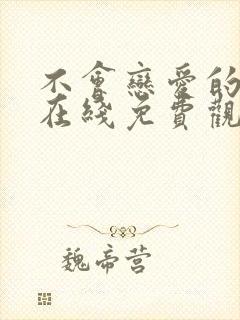 不會戀愛的
在綫免費觀
魏帝营